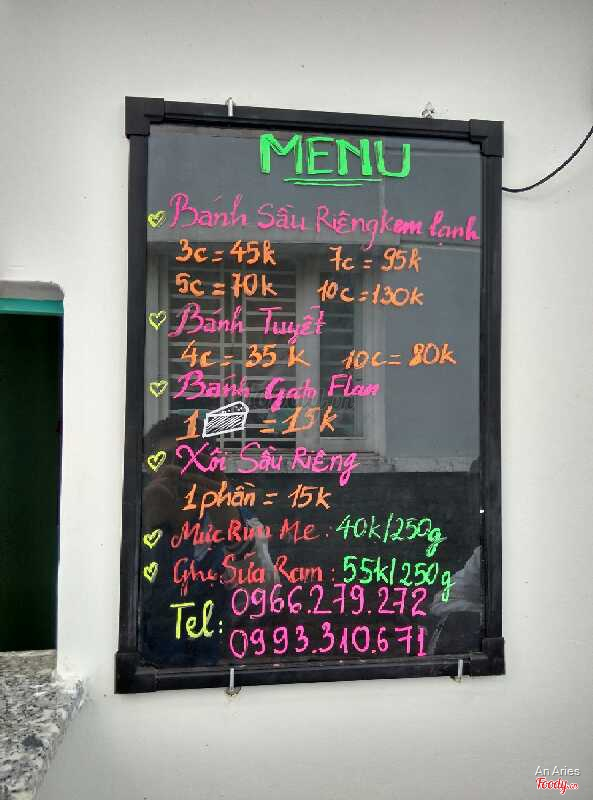 MENU
Bánh Sầu Riêng Kem lạnh
3c = 45k 7c = 95k
5c = 70k 10c = 130k
Bánh Tuyết
4c = 35k 10c = 80k
Bánh Gato Flan
1 = 15k
Xôi Sầu Riêng
1 phần = 15k
Mực Rim Me : 40k/250g
Ghẹ Sữa Ram : 55k/250g
Tel: 0966.279.272
0993.310.671
An Aries
Foody.vn